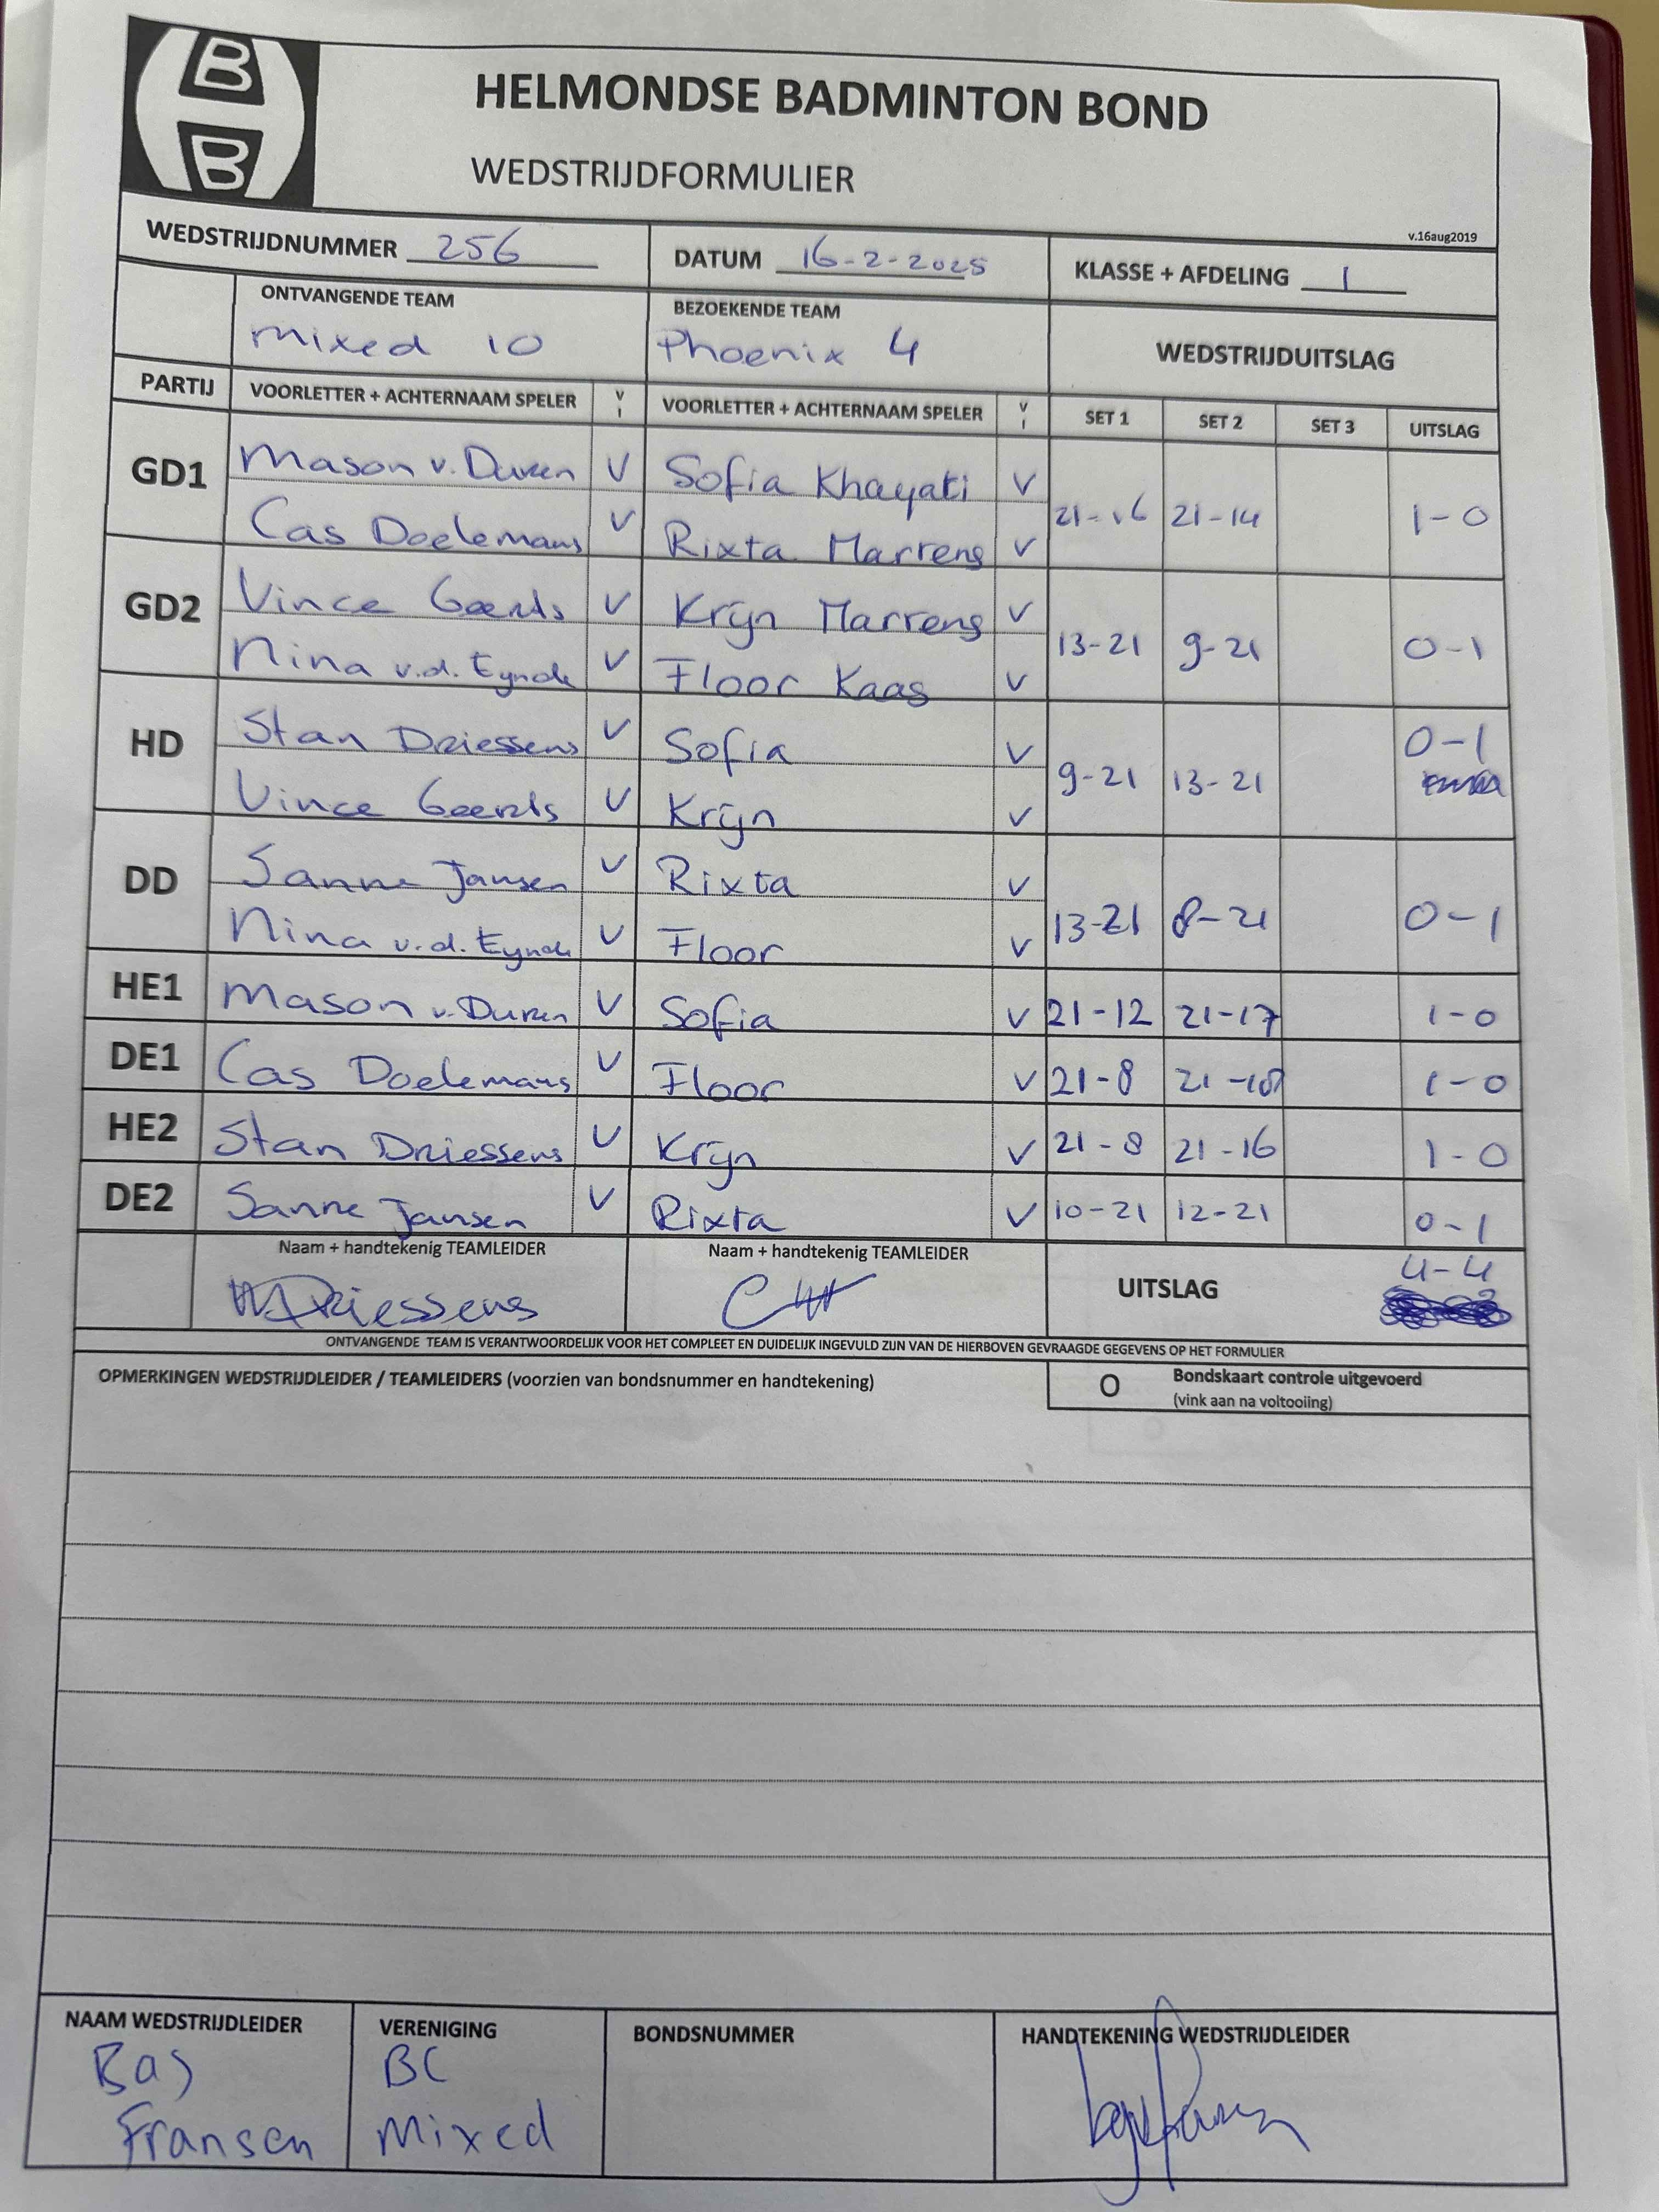 B
B
HELMONDSE BADMINTON BOND
WEDSTRIJDFORMULIER
v.16aug2019
WEDSTRIJDNUMMER 256 DATUM 16-2-2025 KLASSE + AFDELING 1
ONTVANGENDE TEAM BEZOEKENDE TEAM
mixed 10 Phoenix 4 WEDSTRIJDUITSLAG
PARTIJ VOORLETTER + ACHTERNAAM SPELER V I VOORLETTER + ACHTERNAAM SPELER V I SET 1 SET 2 SET 3 UITSLAG
GD1 Mason v. Duren V Sofia Khayati V
Cas Doelemans V Rixta Marrens V 21-16 21-14 1-0
GD2 Vince Geerts V Krijn Marrens V
Nina v.d. Eynde V Floor Kaas V 13-21 9-21 0-1
HD Stan Driessens V Sofia V
Vince Geerts V Krijn V 9-21 13-21 0-1
DD Sanne Jansen V Rixta V
Nina v.d. Eynde V Floor V 13-21 8-21 0-1
HE1 Mason v. Duren V Sofia V 21-12 21-17 1-0
DE1 Cas Doelemans V Floor V 21-8 21-10 1-0
HE2 Stan Driessens V Krijn V 21-8 21-16 1-0
DE2 Sanne Jansen V Rixta V 10-21 12-21 0-1
Naam + handtekenig TEAMLEIDER Naam + handtekenig TEAMLEIDER
Driessens UITSLAG 4-4
ONTVANGENDE TEAM IS VERANTWOORDELIJK VOOR HET COMPLEET EN DUIDELIJK INGEVULD ZIJN VAN DE HIERBOVEN GEVRAAGDE GEGEVENS OP HET FORMULIER
OPMERKINGEN WEDSTRIJDLEIDER / TEAMLEIDERS (voorzien van bondsnummer en handtekening)
O Bondskaart controle uitgevoerd
(vink aan na voltooiing)
NAAM WEDSTRIJDLEIDER VERENIGING BONDSNUMMER HANDTEKENING WEDSTRIJDLEIDER
Bas BC
Fransen Mixed